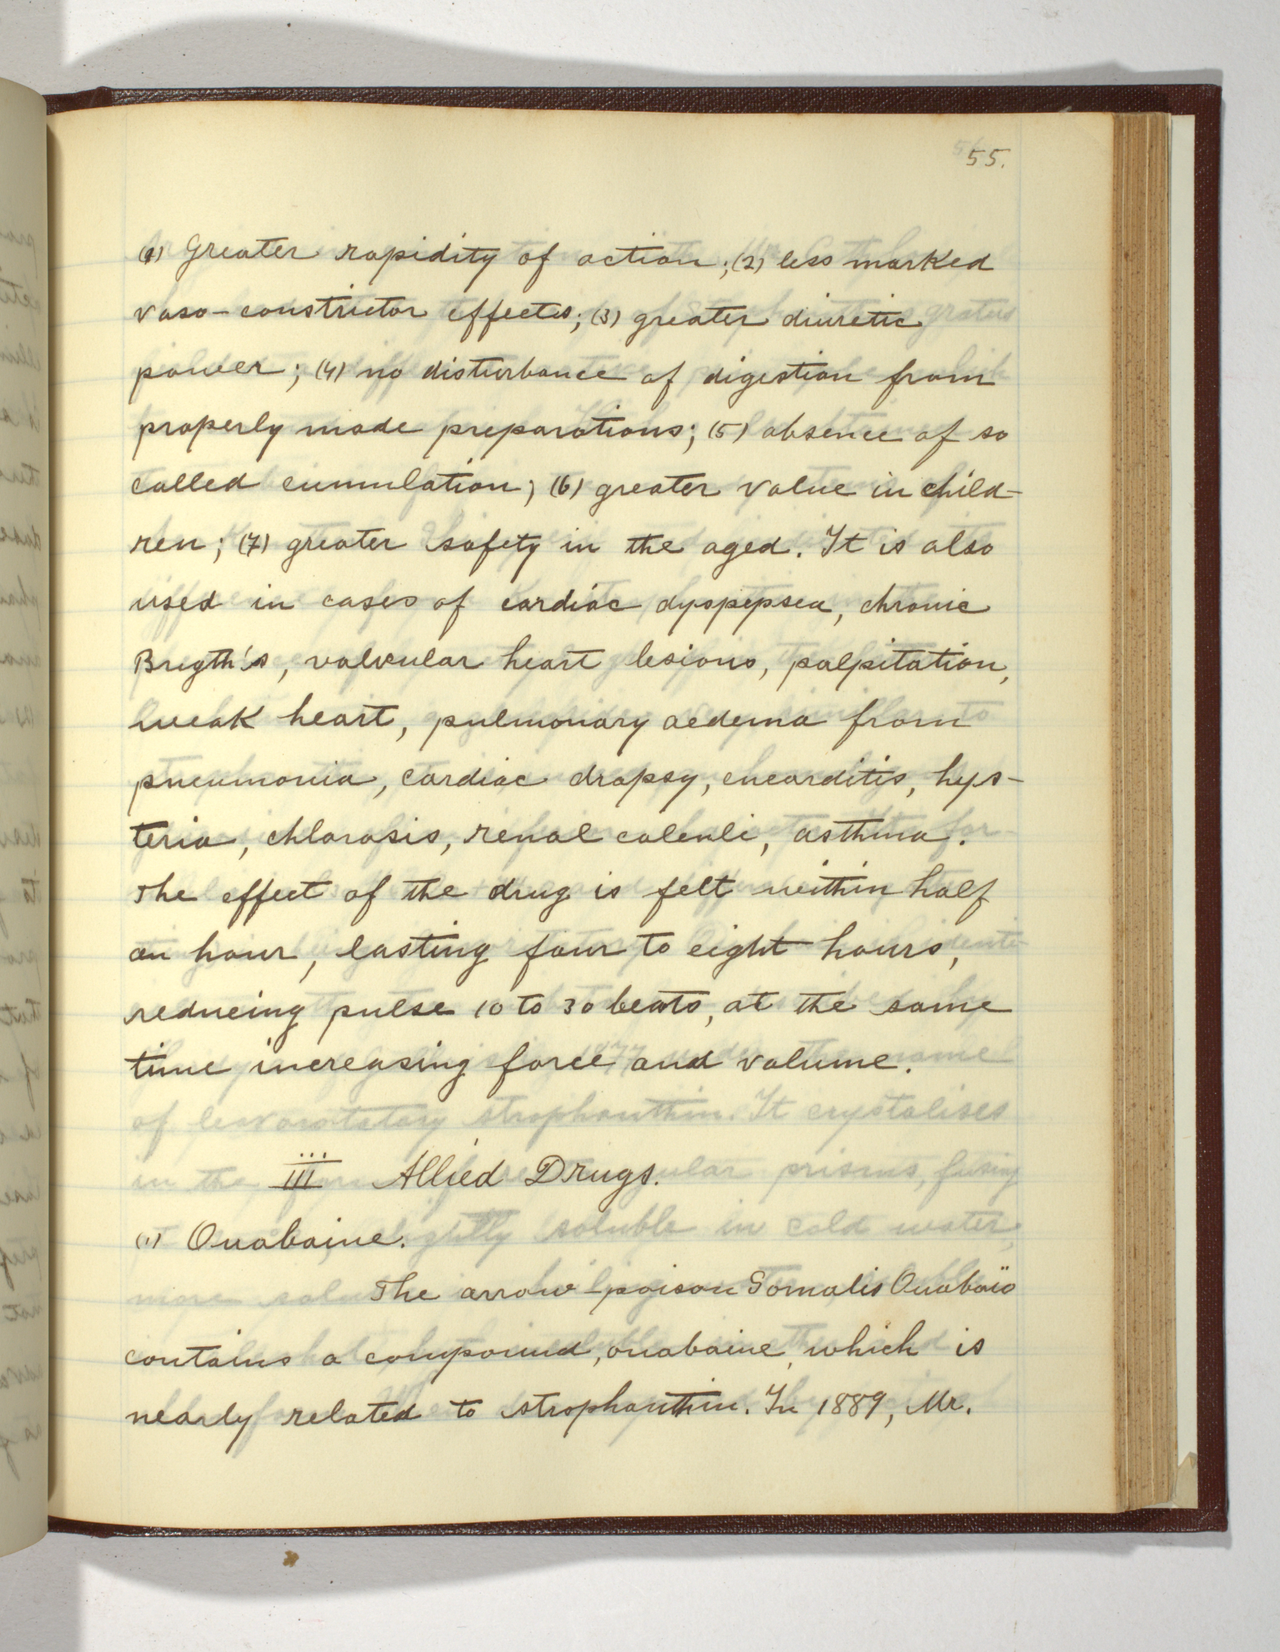 55.
(1) Greater rapidity of action; (2) less marked
vaso-constrictor effects; (3) greater diuretic
power; (4) no disturbance of digestion from
properly made preparations; (5) absence of so
called cumulation; (6) greater value in child-
ren; (7) greater safety in the aged. It is also
used in cases of cardiac dyspepsea, chronic
Brigth's, valvular heart lesions, palpitation,
weak heart, pulmonary aedema from
pneumonia, cardiac dropsy, encarditis, hys-
teria, chlorosis, renal calculi, asthma.
The effect of the drug is felt within half
an hour, lasting four to eight hours,
reducing pulse 10 to 30 beats, at the same
time increasing force and volume.
III Allied Drugs.
(1) Ouabaine.
The arrow-poison Somalis Ouabaïo
contains a compound, ouabaine, which is
nearly related to strophanthin. In 1889, Mr.